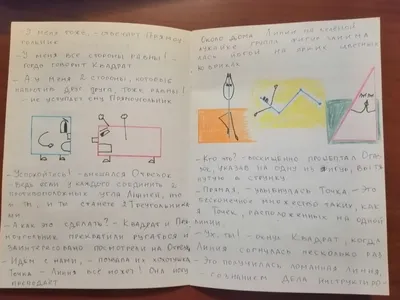 - У меня тоже, - отвечает Прямоу-
гольник.
- У меня все стороны равны! -
гордо говорит Квадрат.
- А у меня 2 стороны, которые
напротив друг друга, тоже равны!
- не уступает ему Прямоугольник
- Успокойтесь! - вмешался Отрезок
- Ведь если у каждого соединить 2
противоположных угла Линией, то
и ты, и ты станете 2 Треугольника
ми
- А как это сделать? - Квадрат и Пря
моугольник прекратили ругаться и
заинтересованно посмотрели на Отрезок.
- Идём с нами, - позвала их хохотушка
Точка - Линия всё может! Она могу
преподаёт
Около дома Линии на зелёной
лужайке группа фигур занима
лась йогой на ярких цветных
ковриках
- Кто это? - восхищённо прошептал Отре
зок, указав на одну из фигур, вытя
нутую в струнку.
- Прямая, - улыбнулась Точка. - Это
бесконечное множество таких, как
я Точек, расположенных на одной
линии.
- Ух ты! - охнул Квадрат, когда
Линия согнулась несколько раз
- Это получилась ломаная линия,
- со знанием дела